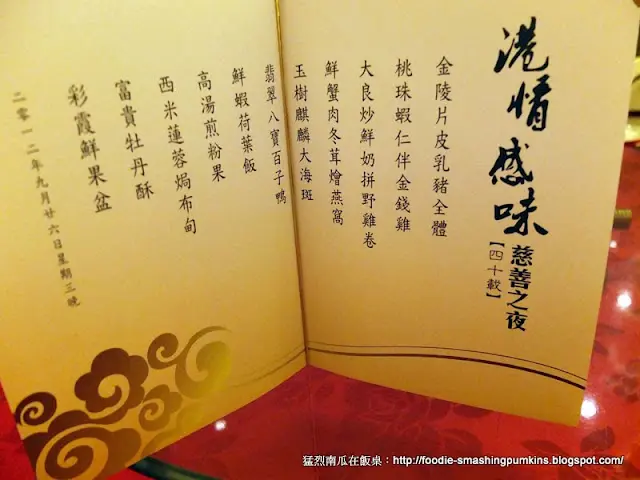 港情感味
慈善之夜
【四十載】
金陵片皮乳豬全體
桃珠蝦仁伴金錢雞
大良炒鮮奶拼野雞卷
鮮蟹肉冬茸燴燕窩
玉樹麒麟大海斑
翡翠八寶百子鴨
鮮蝦荷葉飯
高湯煎粉果
西米蓮蓉焗布甸
富貴牡丹酥
彩霞鮮果盆
二零一二年九月廿六日星期三晚
猛烈南瓜在飯桌：http://foodie-smashingpumkins.blogspot.com/